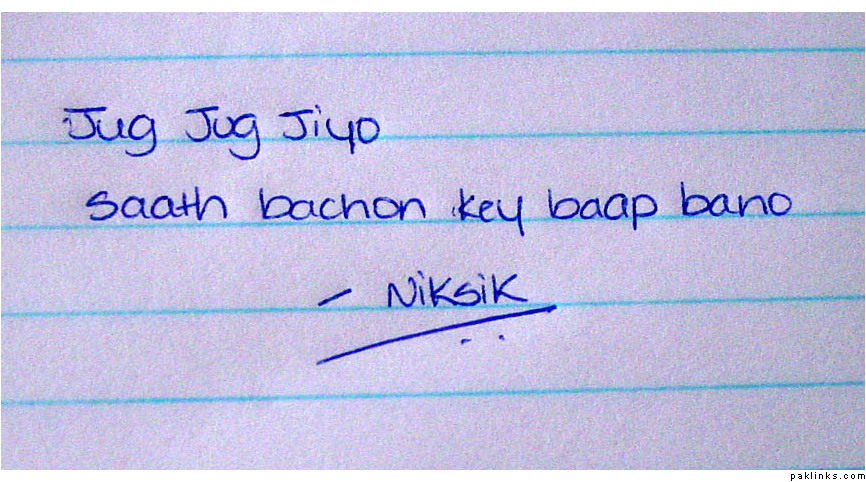 Jug Jug Jiyo
saath bachon key baap bano
– Niksik
paklinks.com